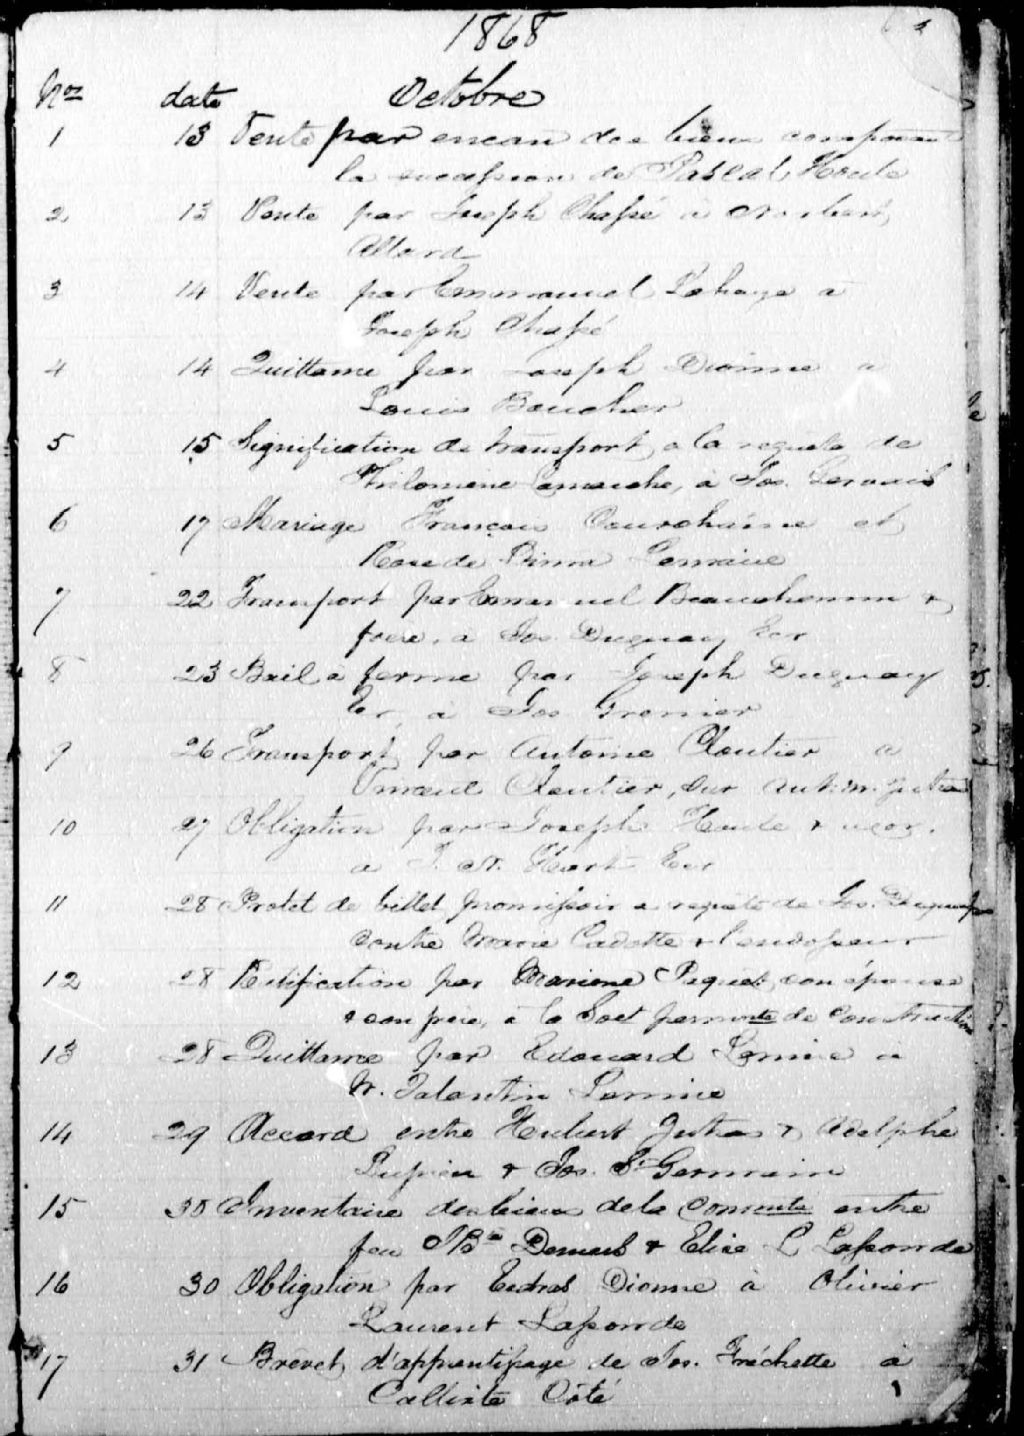 1868
Nos date Octobre
1 13 Vente par encan des biens composant
la succession de Pascal Houle
2 13 Vente par Joseph Chassé à Norbert
Allard
3 14 Vente par Emmanuel Lahaye à
Joseph Chassé
4 14 Quittance par Joseph Dionne à
Louis Boucher
5 15 Signification de transport, a la requête de
Philomène Lamarche, à Jos. Gervais
6 17 Mariage François Courchêne et
Rose de Lima Lemaire
7 22 Transport par Emmanuel Beauchemin &
frère, à Jos. Duguay Ecr
8 23 Bail à ferme par Joseph Duguay
Ecr, à Jos Grenier
9 26 Transport par Antoine Cloutier a
Vincent Cloutier, sur Jutras
10 27 Obligation par Joseph Houle & uxor.
a Hart Ecr
11 28 Protêt de billet promissoir a requête de Jos. Duguay
contre Marie Cadotte & l'endosseur
12 28 Ratification par Paquet, son épouse
& son père, à la Soct permnte de Construction
13 28 Quittance par Edouard Lemire à
Valentin Lemire
14 29 Accord entre Hubert Jutras & Adolphe
Pepin & Jos. St Germain
15 30 Inventaire des biens de la Comnuté entre
feu J Bte Demers & Elise L Lassonde
16 30 Obligation par Esdras Dionne à Olivier
Laurent Lassonde
17 31 Brevet d'apprentissage de Jos. Fréchette à
Callixte Côté